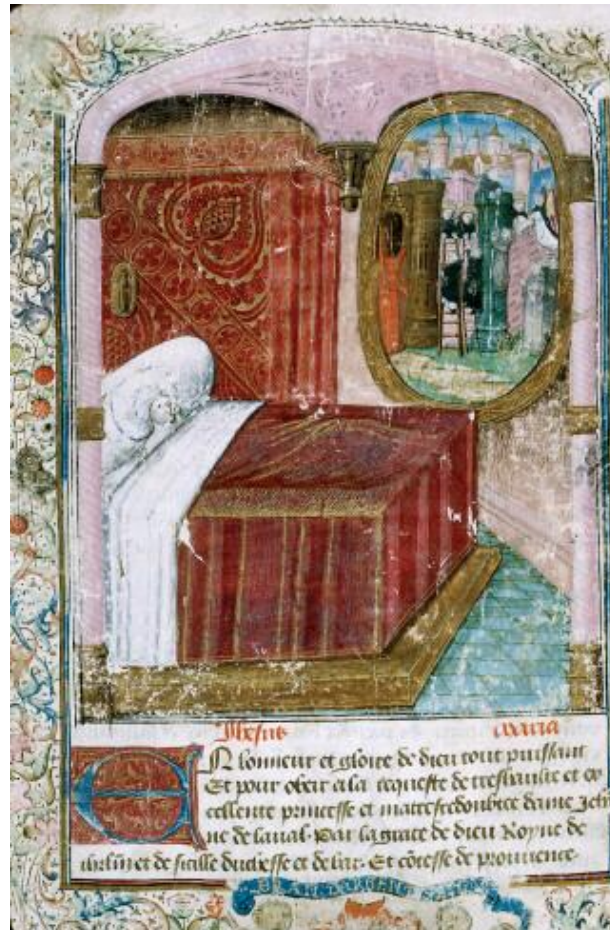 Jhesus maria
En lonneur et gloire de dieu tout puissant
Et pour obeir a la requeste de treshaulte et ex
cellente princesse et ma tresredoubtee dame Jeh
ne de laual. Par la grace de dieu Royne de
ihrlm et de sicille duchesse et de bar. Et cōtesse de prouuence.